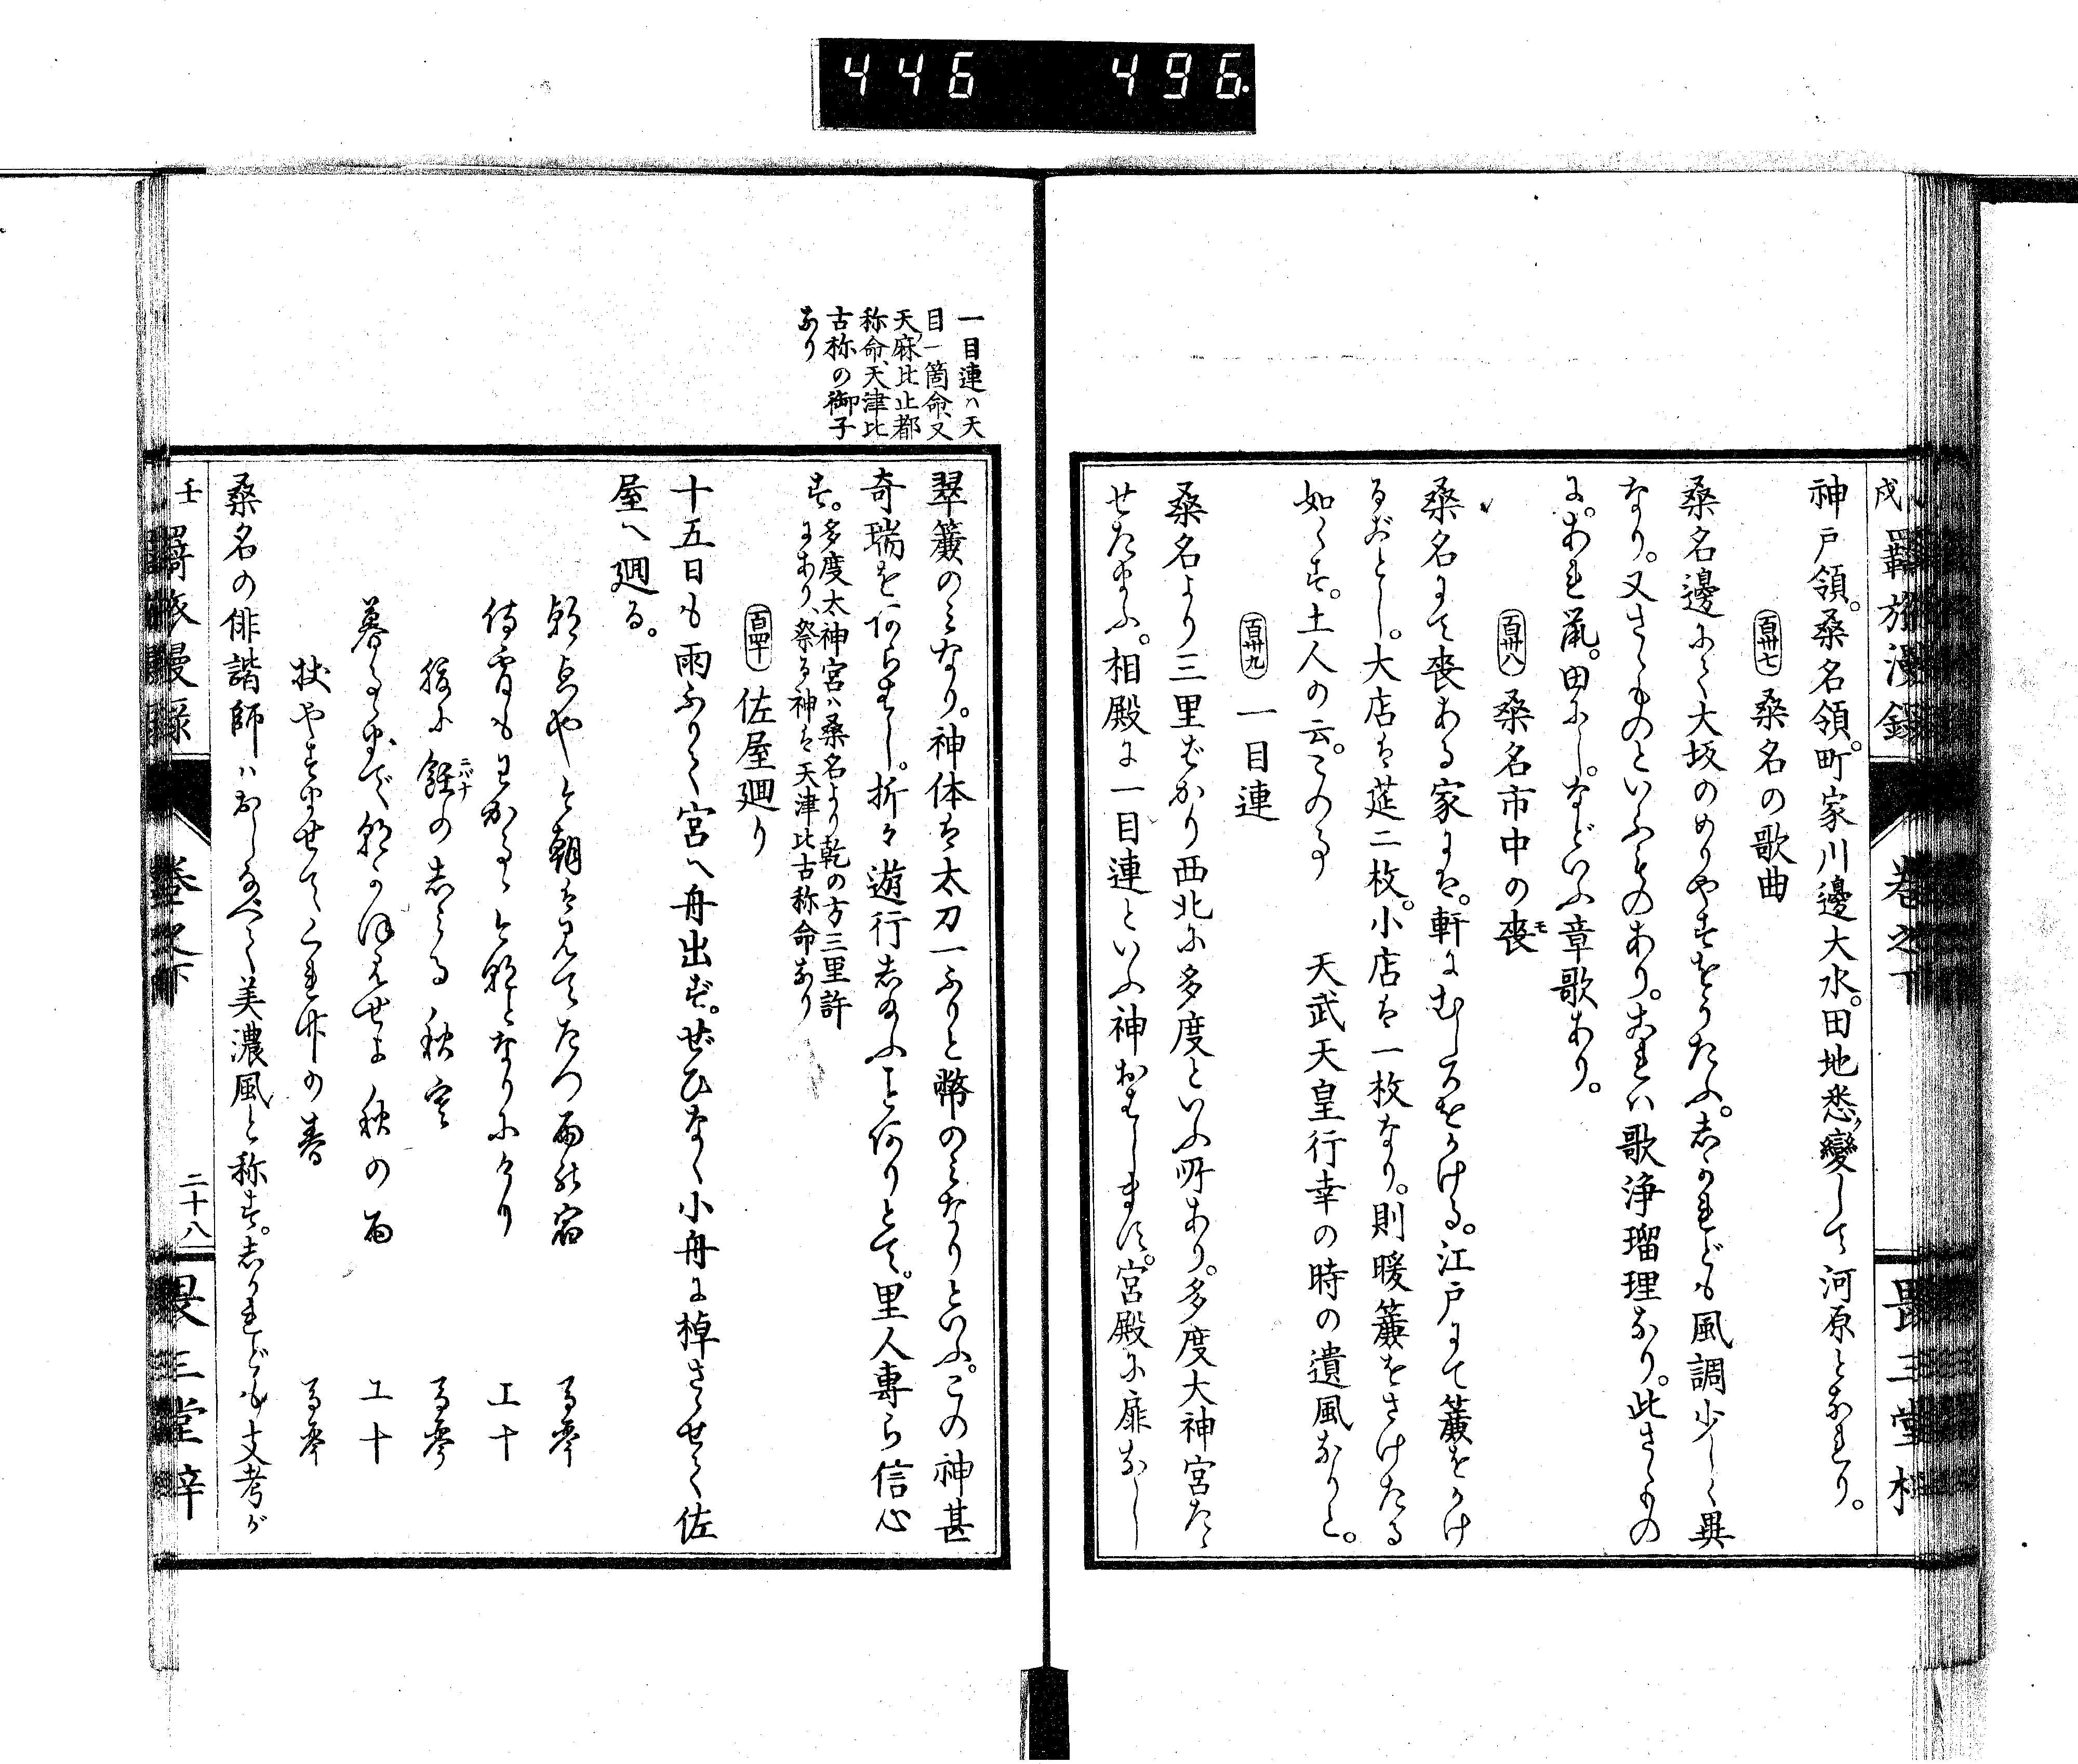 446 496.
戌 羇旅漫録 巻之下 畏三堂村
神戸領。桑名領。町家川邊大水。田地悉ク變して河原となれり。
百卅七 桑名の歌曲
桑名邊にて大坂のめりやすをうたふ。しかれども風調少しく異
なり。又さゝものといふものあり。これハ歌浄瑠理なり。此さゝもの
に。あれ鼠。田にし。などいふ章歌あり。
百卅八 桑名市中の喪モ
桑名にて喪ある家には。軒にむしろをかける。江戸にて簾をかけ
るがごとし。大店は莚二枚。小店は一枚なり。則暖簾をさけたる
如くす。土人の云。この事 天武天皇行幸の時の遺風なりと。
百卅九 一目連
桑名より三里ばかり西北に多度といふ所あり。多度大神宮たゝ
せたまふ。相殿に一目連といふ神おはします。宮殿に扉なし
一目連ハ天
目一箇命、又
天麻比止都
称命、天津比
古称の御子
なり
翠簾のミなり。神体は太刀一ふりと幣のミなりといふ。この神甚
奇瑞をあらはし。折々遊行し給ふことありとて。里人専ら信心
す。多度太神宮ハ桑名より乾の方三里許
にあり、祭る神は天津比古称命なり
百四十 佐屋廻り
十五日も雨ふりて宮へ舟出ず。ぜひなく小舟に棹さゝせて佐
屋へ廻る。
朝は見えてたつ雨の宿 馬琴
待宵も となりにけり 工十
に鮏の志る秋 馬琴
暮るゝまで せよ秋の雨 工十
扶やすませて の春 馬琴
桑名の俳諧師ハおしなべて美濃風と称す。しかれども支考が
壬 羇旅漫録 巻之下 二十八 畏三堂梓